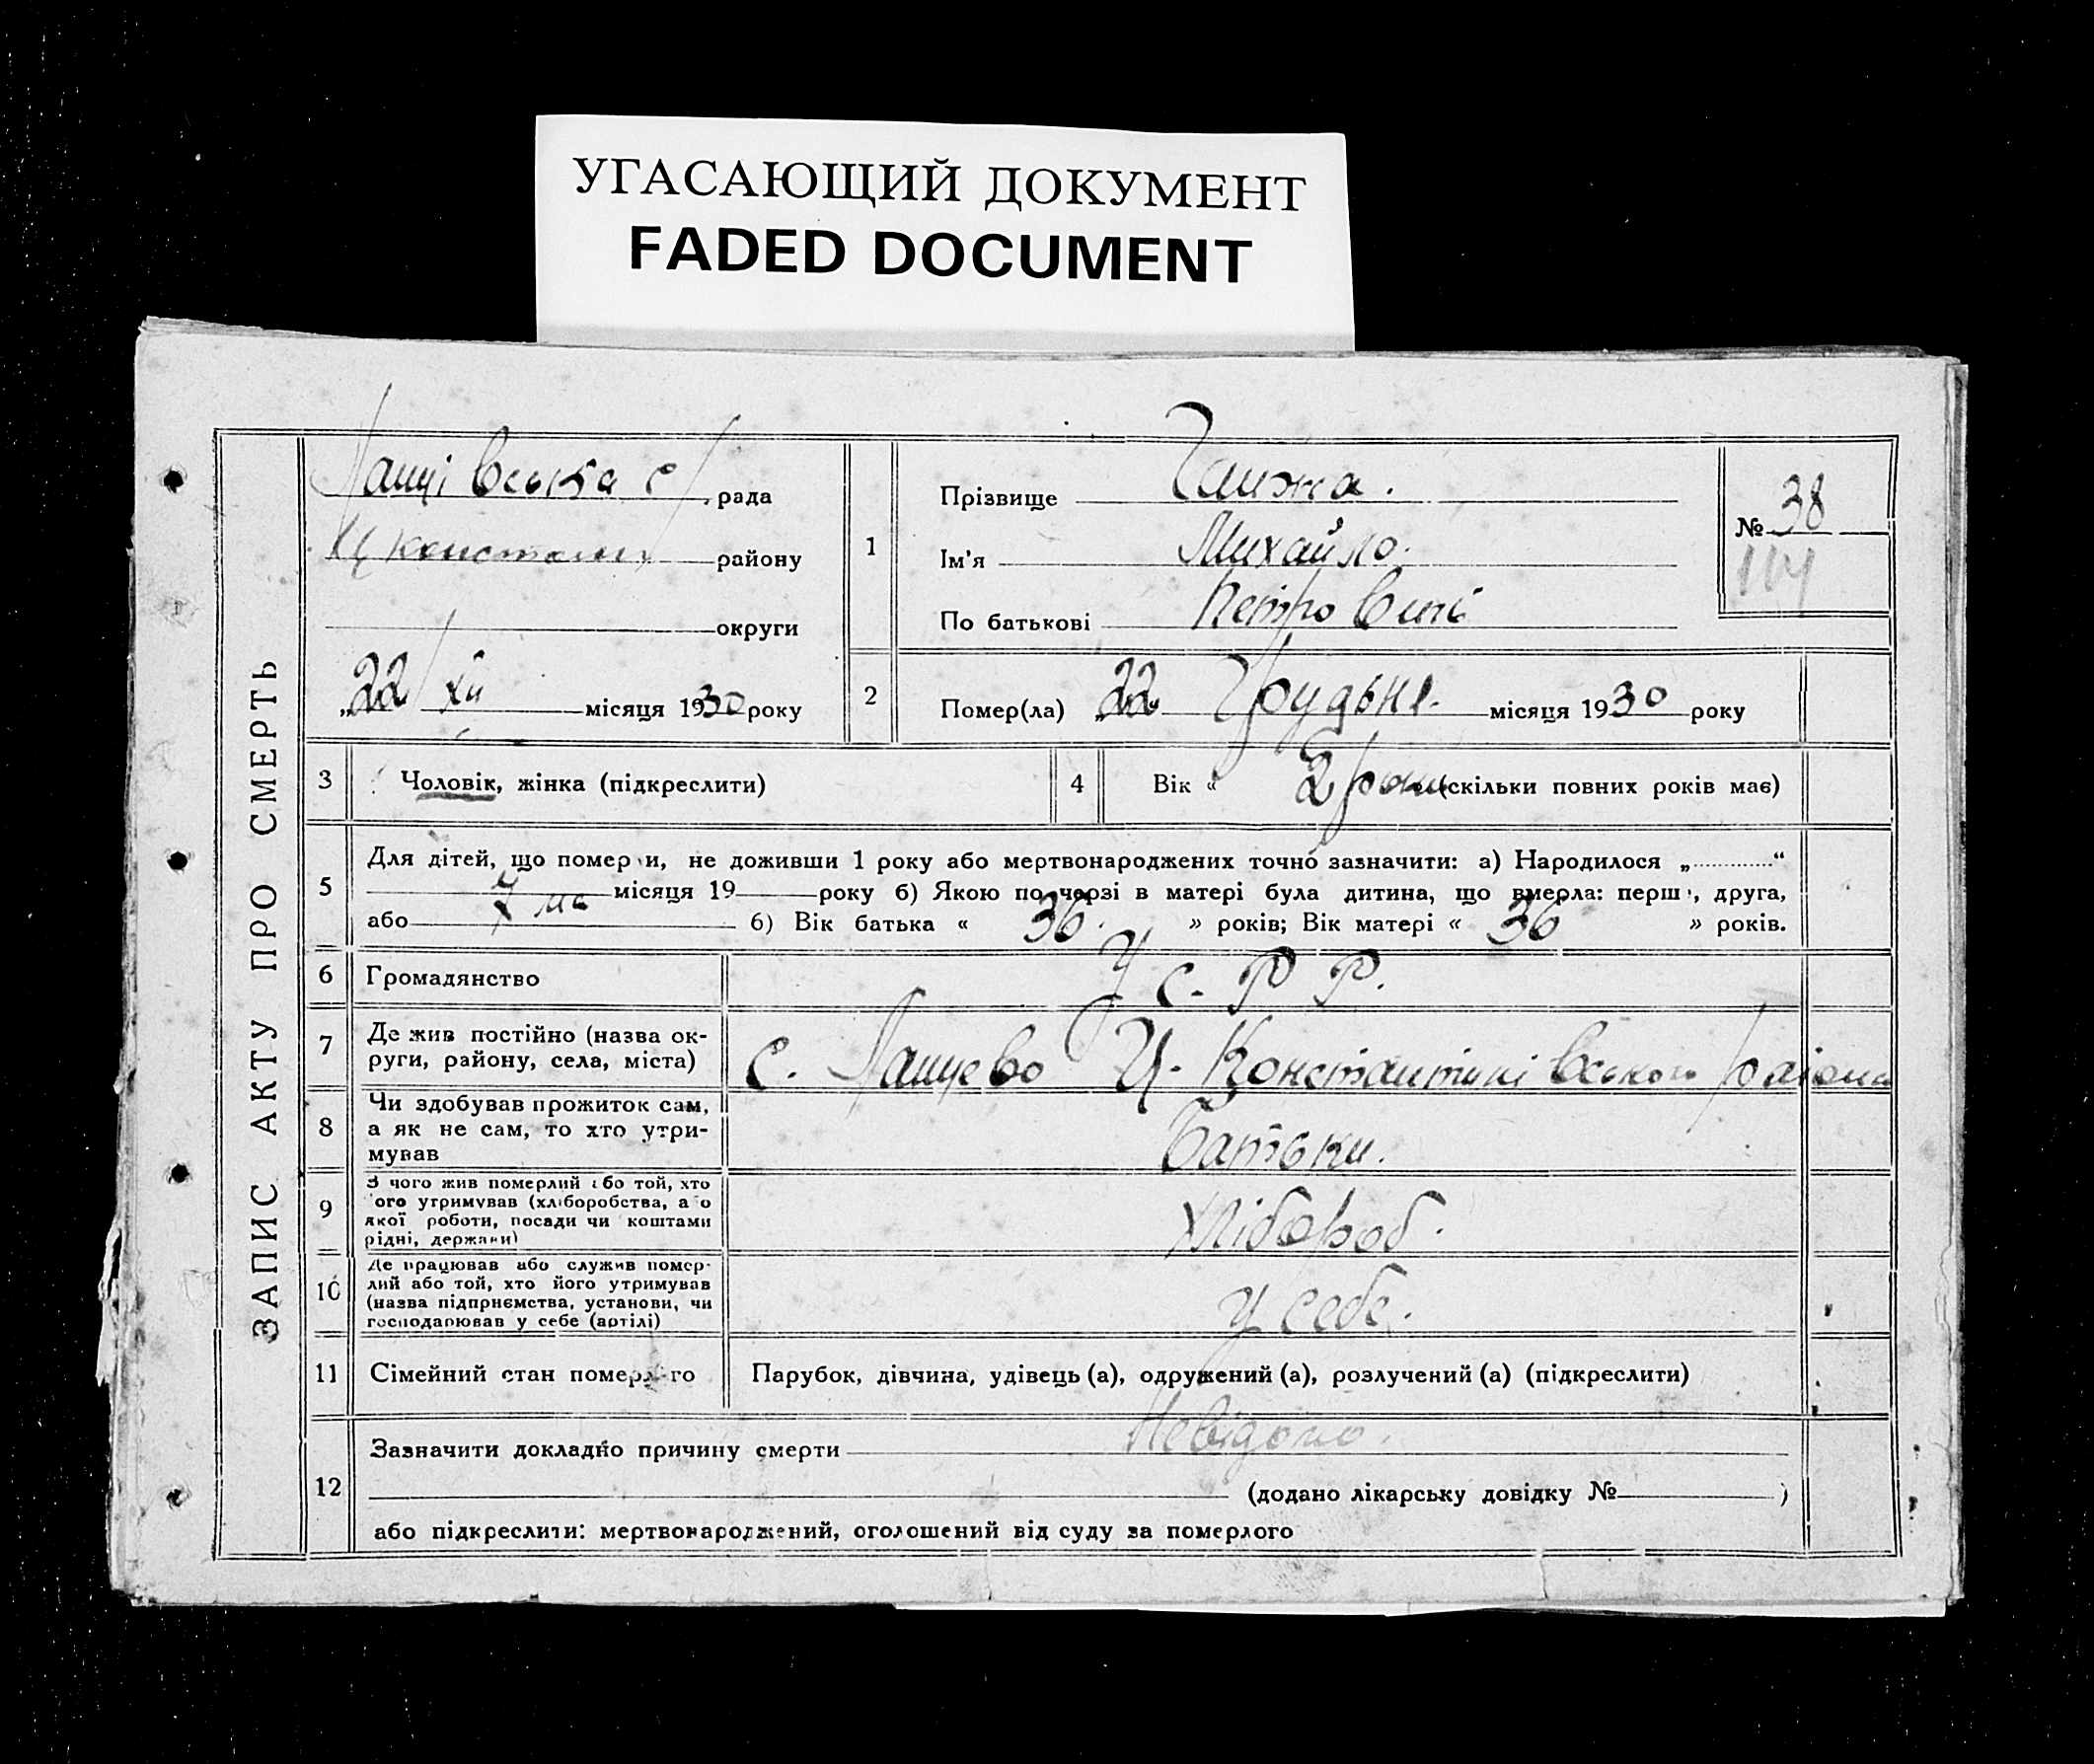 УГАСАЮЩИЙ ДОКУМЕНТ
FADED DOCUMENT
ЗАПИС АКТУ ПРО СМЕРТЬ
Лащівська с/рада
району
округи
„22/ХІІ місяця 1930 року
1
Прізвище
Ім'я Михайло.
По батькові Петрович
№ 38
114
2
Помер(ла) „22" Грудня місяця 1930 року
3
Чоловік, жінка (підкреслити)
4
Вік « 2 роки (скільки повних років має)
5
Для дітей, що померли, не доживши 1 року або мертвонароджених точно зазначити: а) Народилося „ “
місяця 19 року б) Якою по черзі в матері була дитина, що вмерла: перша, друга,
або 6) Вік батька « 36. » років; Вік матері « 36 » років.
6
Громадянство
У С. Р Р.
7
Де жив постійно (назва ок-
руги, району, села, міста)
с. Лащево Ц-Константинівського району
8
Чи здобував прожиток сам,
а як не сам, то хто утри-
мував
Батьки.
9
З чого жив померлий або той, хто
його утримував (хліборобства, або
якої роботи, посади чи коштами
рідні, держави)
Хлібороб.
10
Де працював або служив помер-
лий або той, хто його утримував
(назва підприємства, установи, чи
господарював у себе (артілі)
у себе.
11
Сімейний стан померлого
Парубок, дівчина, удівець (а), одружений (а), розлучений (а) (підкреслити)
12
Зазначити докладно причину смерти Невідомо.
(додано лікарську довідку № )
або підкреслити: мертвонароджений, оголошений від суду за померлого